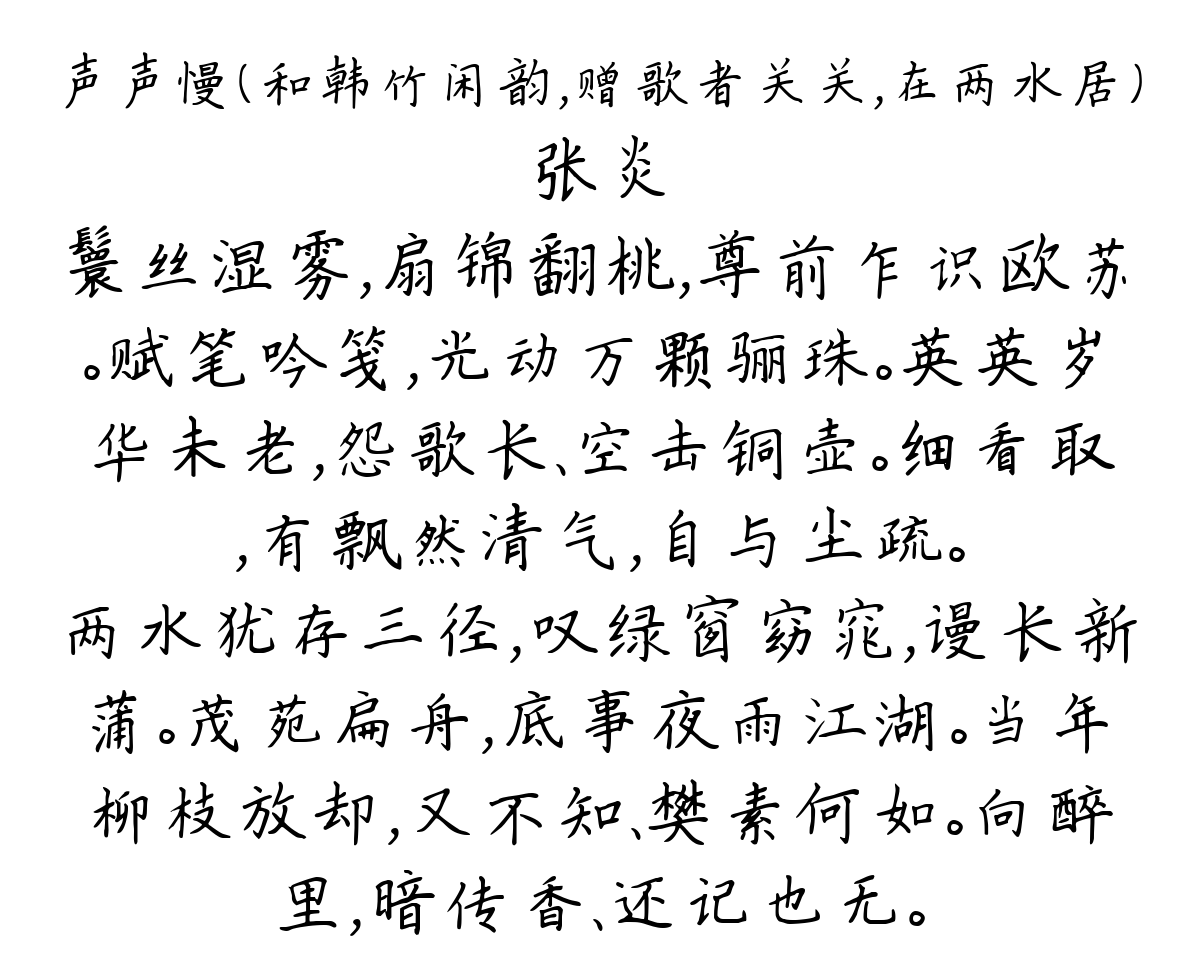 声声慢(和韩竹闲韵,赠歌者关关,在两水居)
张炎
鬟丝湿雾,扇锦翻桃,尊前乍识欧苏
。赋笔吟笺,光动万颗骊珠。英英岁
华未老,怨歌长、空击铜壶。细看取
,有飘然清气,自与尘疏。
两水犹存三径,叹绿窗窈窕,谩长新
蒲。茂苑扁舟,底事夜雨江湖。当年
柳枝放却,又不知、樊素何如。向醉
里,暗传香、还记也无。